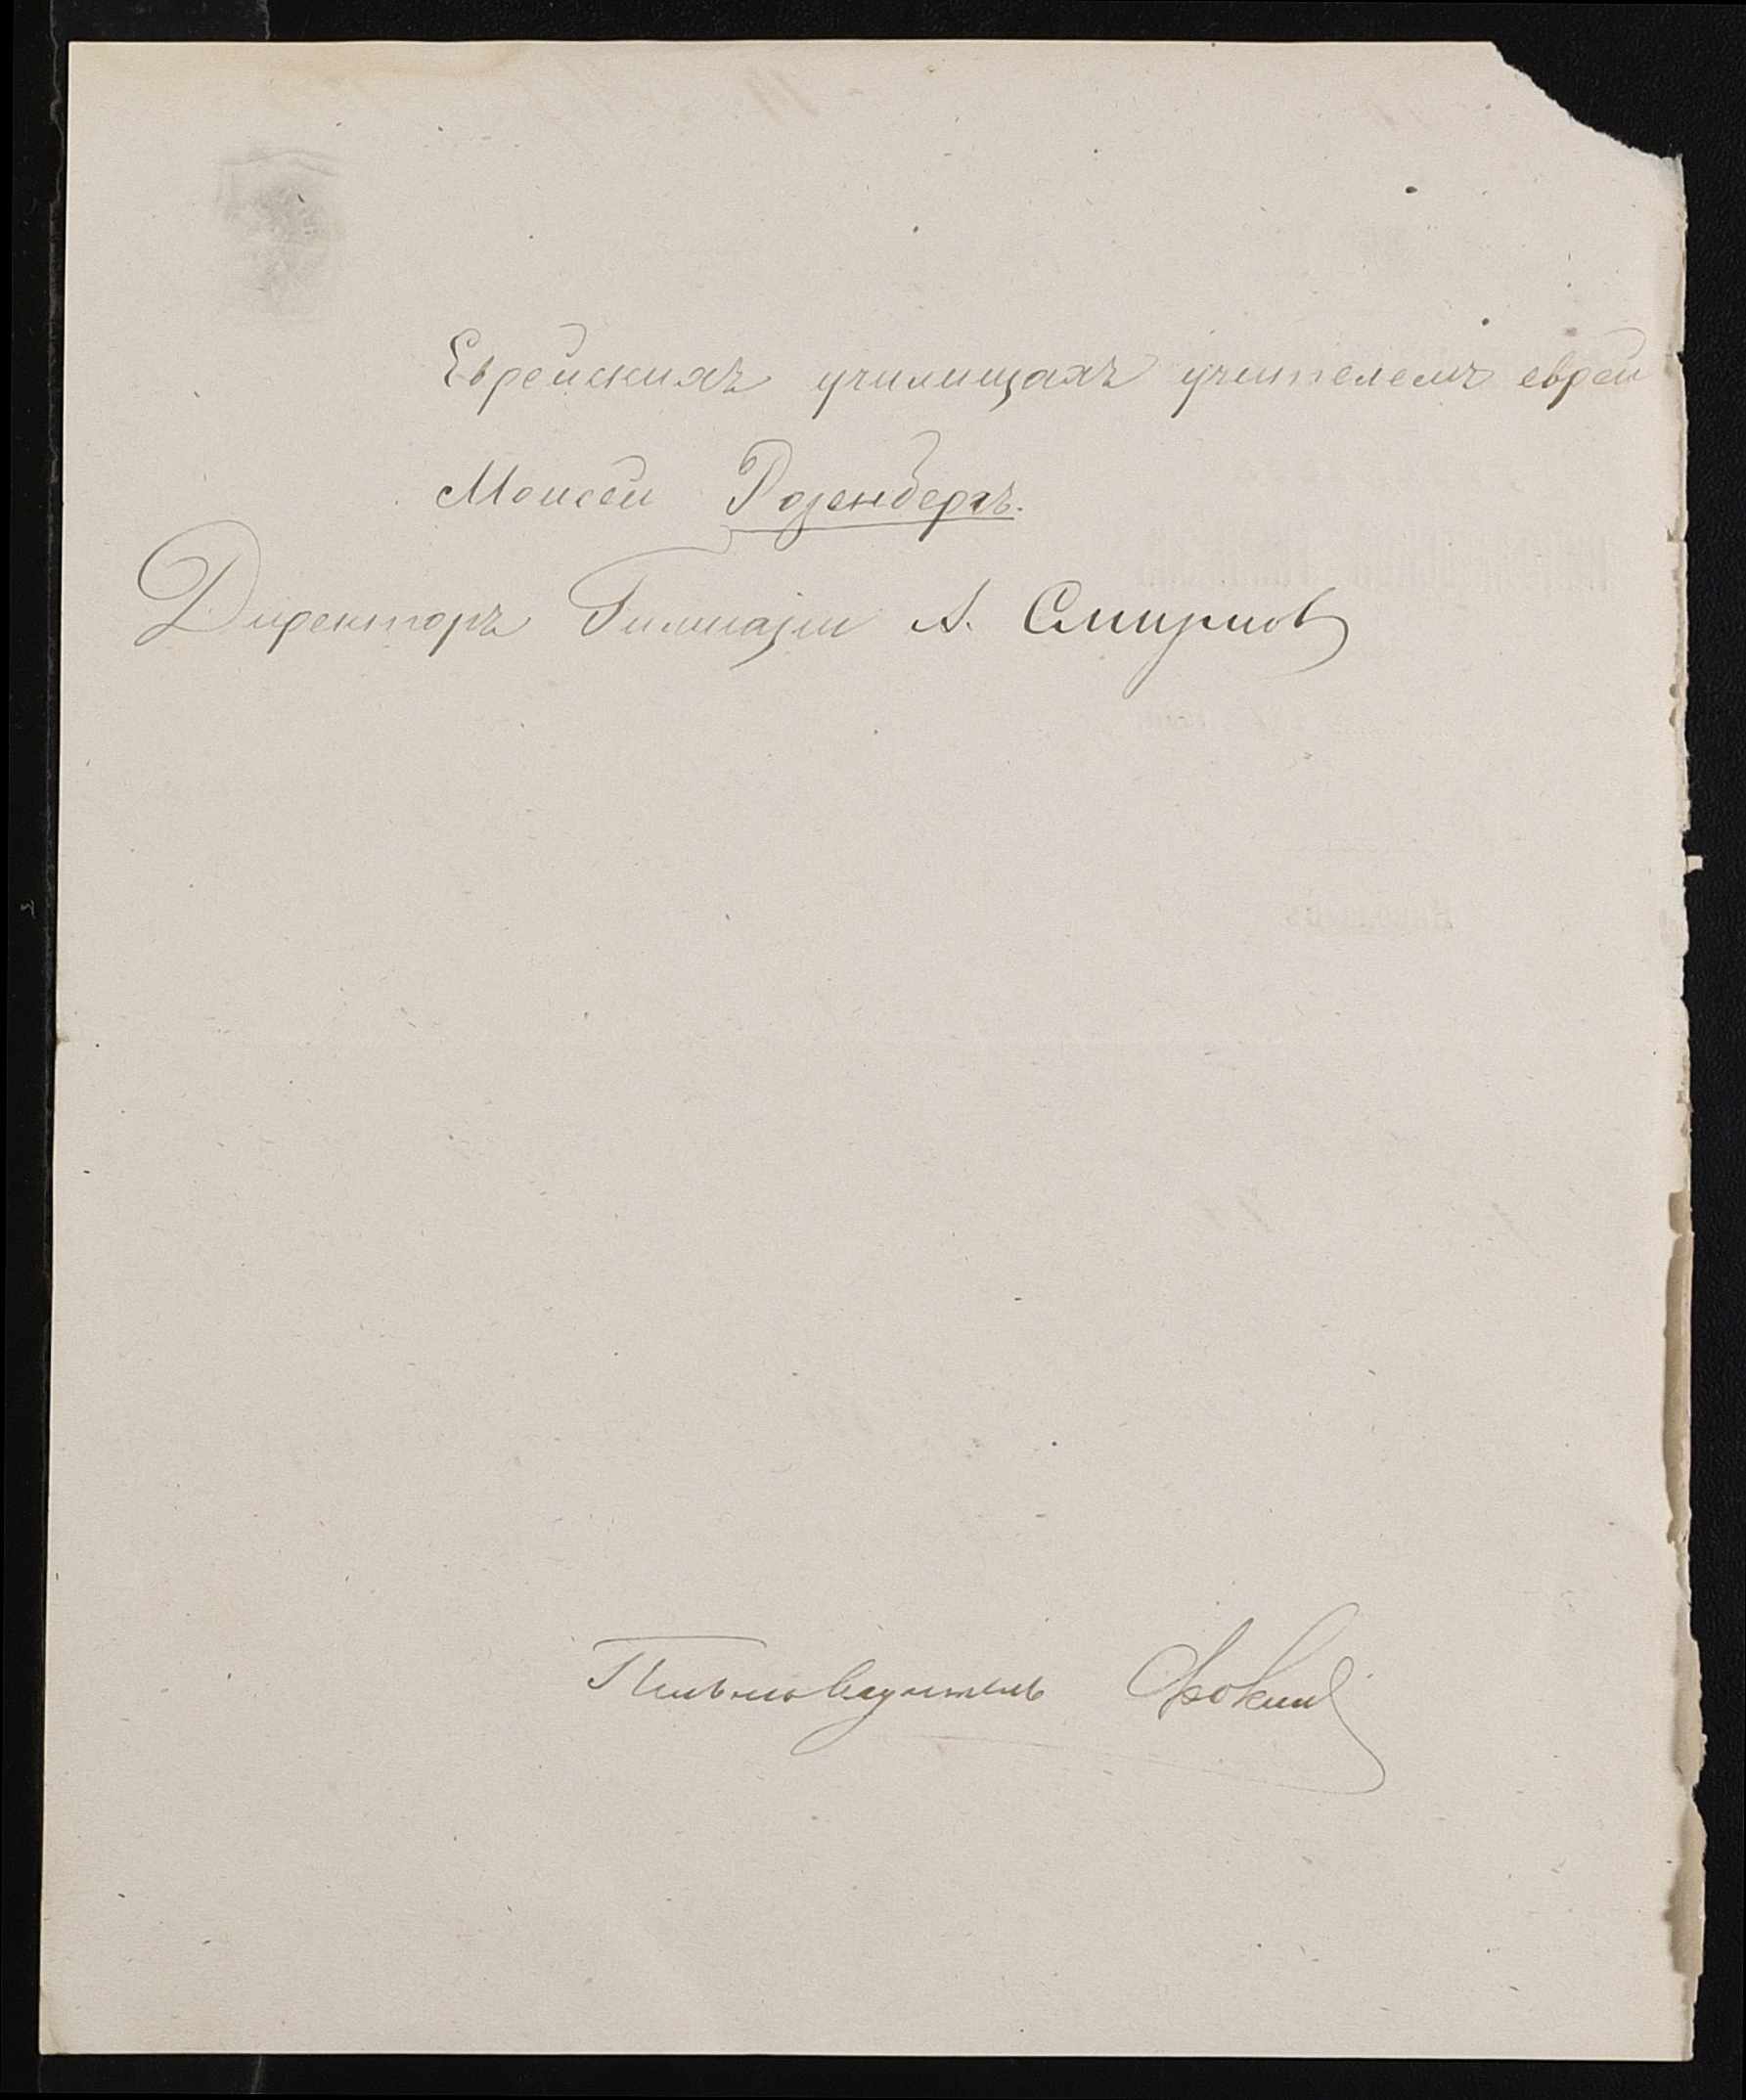 Еврейскихъ училищахъ учителемъ еврей
Моисей Розенбергъ.
Директоръ Гимназіи А. Смирнов
Письмоводитель